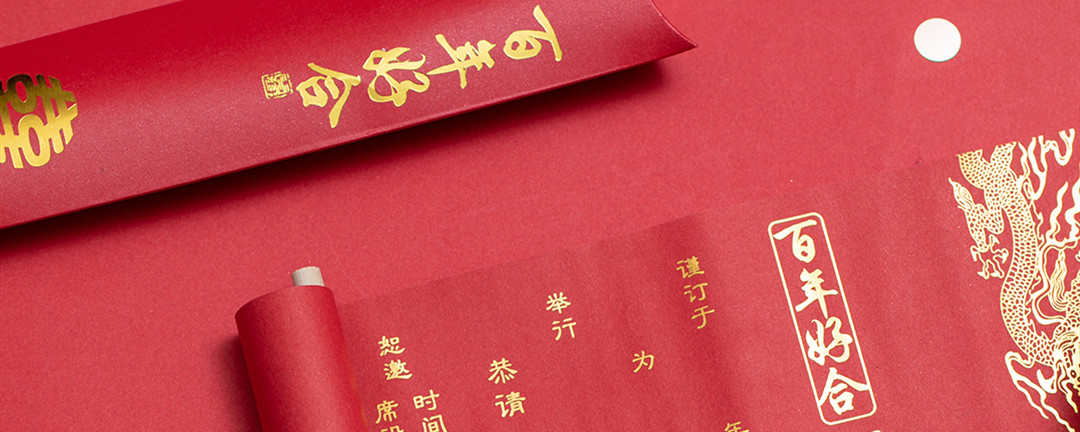 百年好合
囍
百年好合
谨订于
年
为
举行
恭请
时间
恕邀
席设